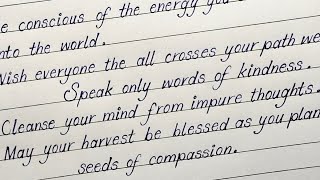 e conscious of the energy you
nto the world.
Wish everyone the all crosses your path we
Speak only words of kindness.
Cleanse your mind from impure thoughts.
May your harvest be blessed as you plan
seeds of compassion.